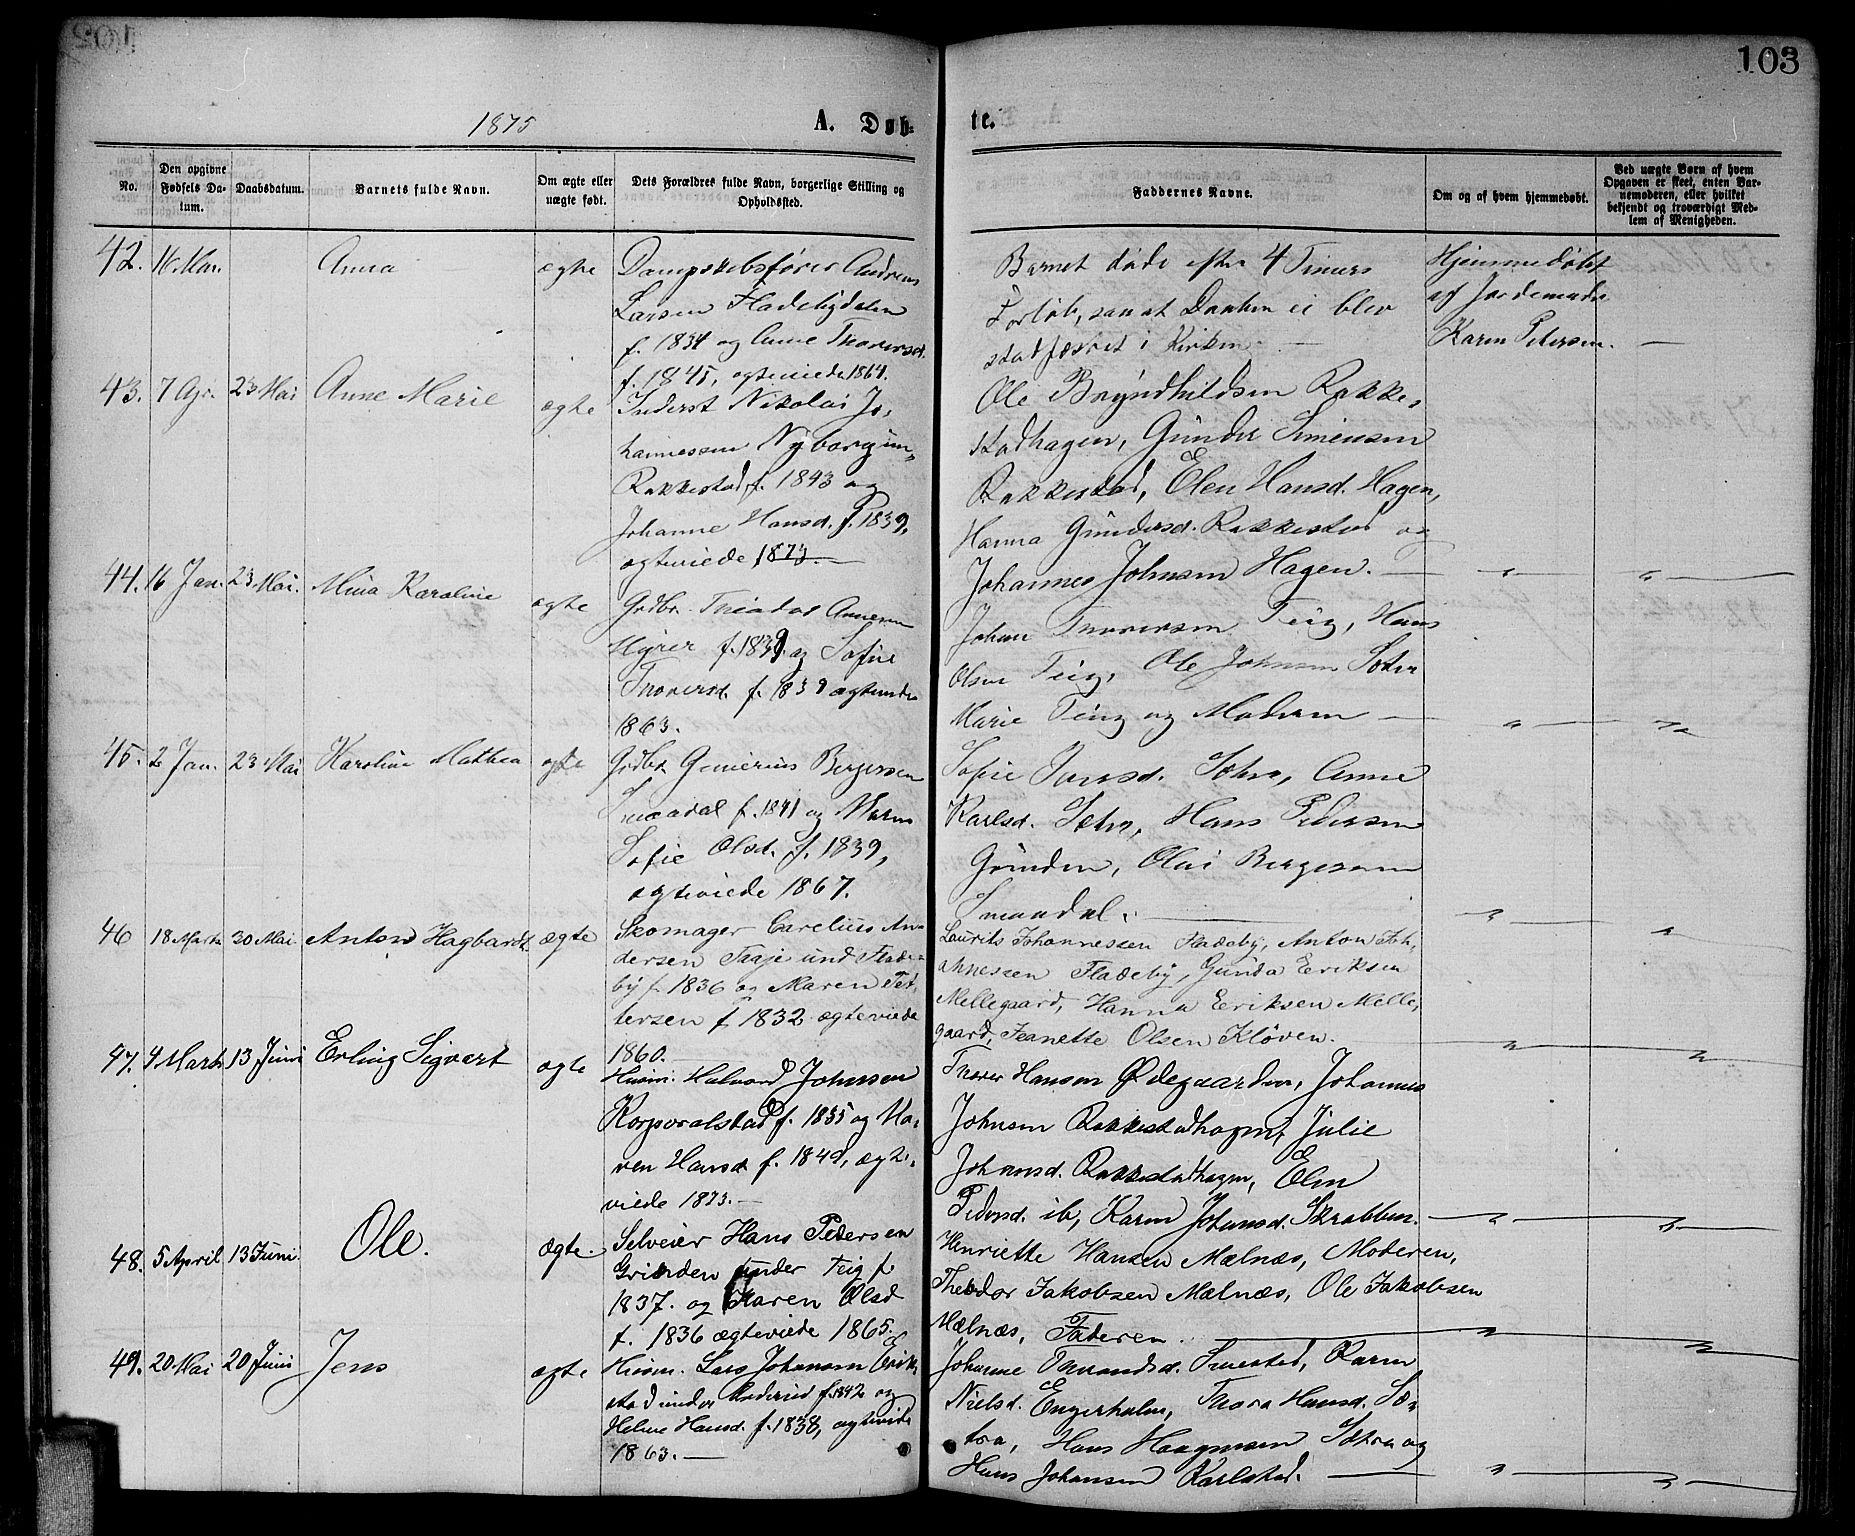 103
1875
A. Døb-
te.
No.
Den opgivne Fødsels Da-tum.
Daabsdatum.
Barnets fulde Navn.
Om ægte eller uægte født.
Dets Forældres fulde Navn, borgerlige Stilling og Opholdssted.
Faddernes Navne.
Om og af hvem hjemmedøbt.
Ved uægte Børn af hvem Opgaven er skeet, enten Bar-nemoderen, eller hvilket bekjendt og troværdigt Med-lem af Menigheden.
42. 16 Mar. Anna ægte
Dampskibsfører Andreas
Larsen Fladebydalen
f. 1834 og Anne Thorersd.
f. 1845, ægteviede 1864.
Barnet døde efter 4 Timers
Forløb, saa at Daaben ei blev
stadfæstet i Kirken. —
Hjemmedøbt
af Jordemoder
Karen Petersen. —
43. 7 Apr. 23 Mai Anne Marie ægte
Inderst Nikolai Jo-
hannessen Nyborg un.
Rakkestad f. 1843 og
Johanne Hansd. f. 1839,
ægteviede 1873. —
Ole Bryndhildsen Rakke-
stadhagen, Gunder Simensen
Rakkestad, Elen Hansd. Hagen,
Hanna Gundersd. Rakkestad og
Johannes Johnsen Hagen. — " — " —
44. 16 Jan. 23 Mai. Mina Karoline ægte
Grdbr. Theodor
f. 1839 og Sofie
Thorersd. f. 1839 ægteviede
1863.
Johan Thorersen Teig, Hans
Olsen Teig, Ole Johnsen
Marie Teig og Moderen — " — "
45. 2 Jan. 23 Mai Karoline Mathea ægte
Grdbr. Gunerius Bergersen
Smaadal f. 1841 og Karen
Sofie Olsd. f. 1839,
ægteviede 1867.
Sofie Jensd. Anne
Karlsd. Hans Pedersen
Grinden, Olai Bergersen
Smaadal. — " — "
46 18 Marts 30 Mai. Anton Hagbardt ægte
Skomager Carelius An-
dersen Taaje und Flade-
by f. 1836 og Maren Pet-
tersen f. 1832 ægteviede
1860. —
Laurits Johannessen Fladeby, Anton Joh-
annessen Fladeby, Gunda Eeriksen
Mellegaard, Hanna Eeriksen Melle-
gaard, Jeanette Olsen Kløven. " — "
47. 4 Marts 13 Juni Erling Sigvart ægte
Husm. Halvord Johnsen
Korpvralstad f. 1835 og Ma-
ren Hansd. f. 1849, ægte-
viede 1873. —
Thorer Hansen Ødegaarden, Johannes
Johnsen Rakkestadhagen, Julie
Johnsd. Rakkestadhagen, Elen
Pedersd. ib, Karen Johansd. Skrabben. — " — "
48. 5 April 13 Juni. Ole. ægte
Selveier Hans Pedersen
Grinden under Teig f.
1837. og Karen Olsd
f. 1836 ægteviede 1865.
Henriette Hansen Mælnæs, Moderen,
Theodor Jakobsen Mælnæs, Ole Jakobsen
Mælnæs, Faderen. — " — "
49. 20 Mai 20 Juni Jens ægte
Husm. Lars Johansen Erik-
stad under f. 1842 og
Helene Hansd. f. 1838, ægteviede
1863. —
Johanne Thorandsd. Smestad, Karen
Nielsd. Engerholm, Thora Hansd. Sæ-
tra, Hans Haagensen Sætra og
Hans Johansen Karlstad. — " — "